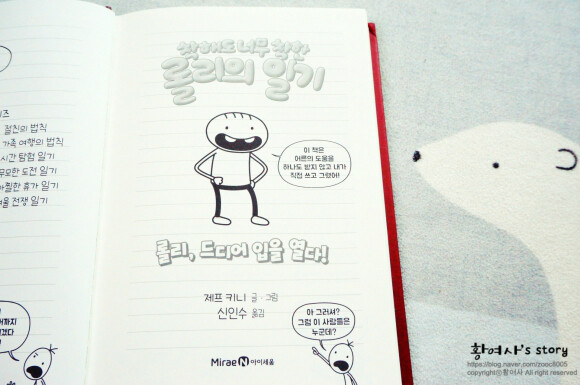 착해도 너무 착한
롤리의 일기
이 책은
어른의 도움을
하나도 받지 않고 내가
직접 쓰고 그렸어!
롤리, 드디어 입을 열다!
제프 키니 글·그림
신인수 옮김
아 그러셔?
그럼 이 사람들은
누군데?
Mirae N 아이세움
절친의 법칙
가족 여행의 법칙
시간 탐험 일기
무모한 도전 일기
휴가 일기
전쟁 일기
황여사's story
https://blog.naver.com/zoac8005
copyrightⓒ황여사 All right reserved